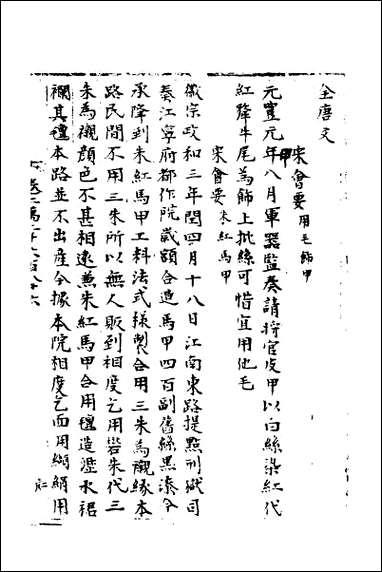 全唐文
宋會要 用毛飾甲
甲
元豐元年八月軍器監奏請將官皮甲以白絲染紅代
紅犛牛尾為飾上批絲可惜宜用他毛
宋會要 朱紅馬甲
徽宗政和三年閏四月十八日江南東路提點刑獄司
奏江寧府都作院歲額合造馬甲四百副舊絲黑漆今
承降到朱紅馬甲工料法式様製合用三朱為襯緣本
路民間不用三朱所以無人販到相度乞用礬朱代三
朱為襯顏色不甚相遠兼朱紅馬甲合用氊造遮水裙
襴其氊本路並不出產今據本院相度乞面用紬絹用